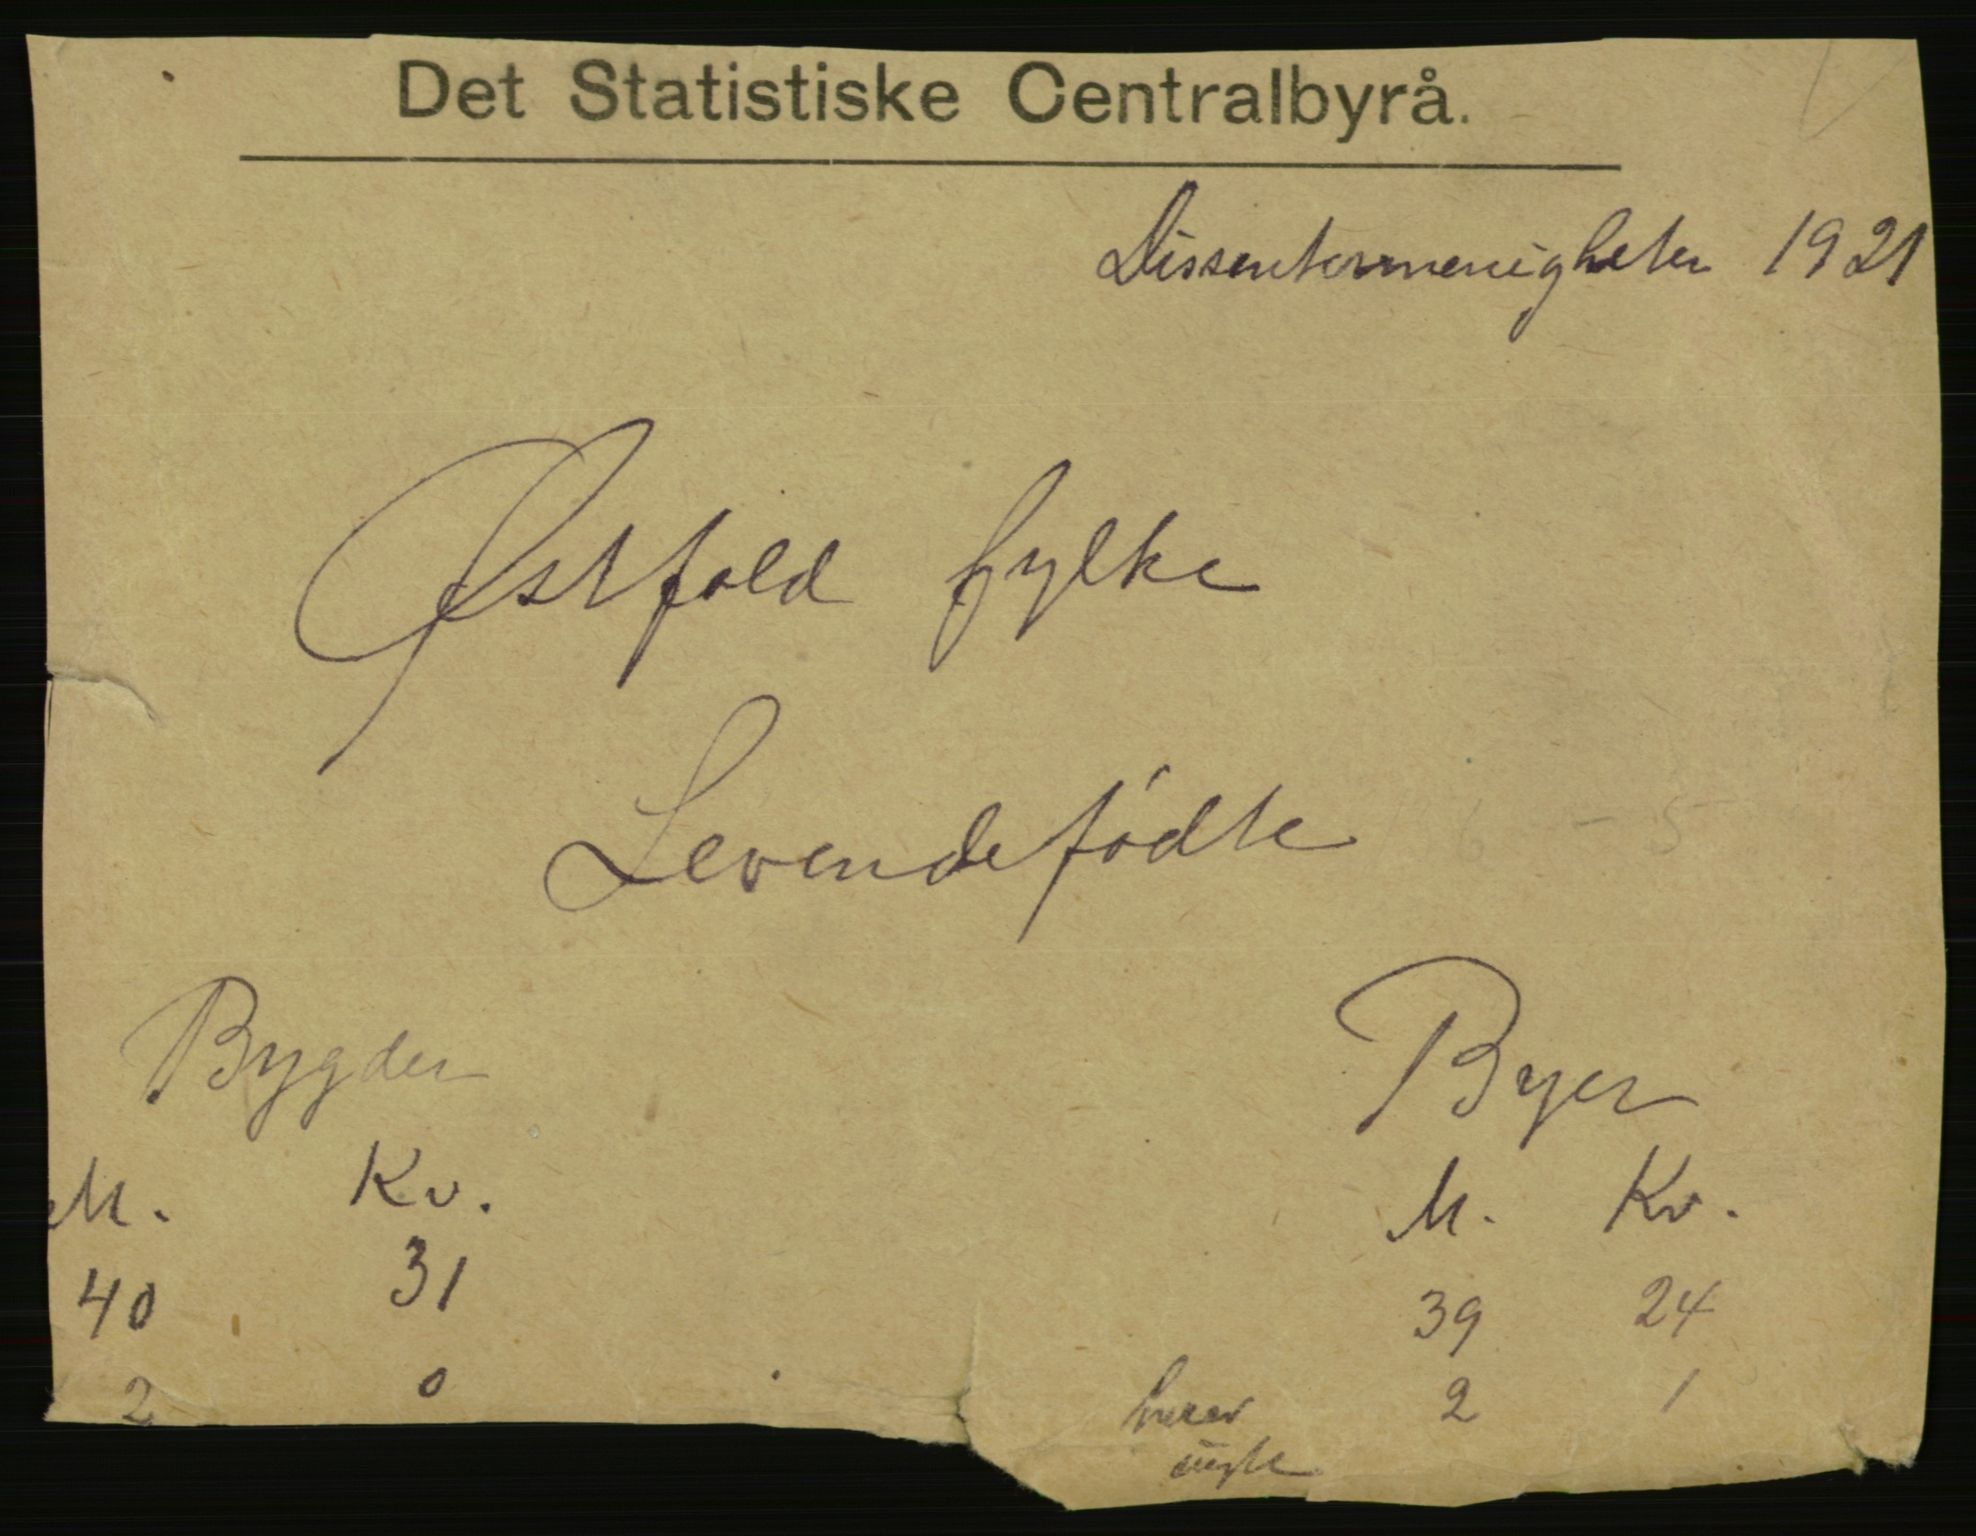 Det Statistiske Centralbyrå.
Dissentermenigheter 1921
Østfold fylke
Levendefødte
Bygder
Byer
M. Kv.
M. Kv.
40 31
39 24
2 0
herav 2 1
uegte